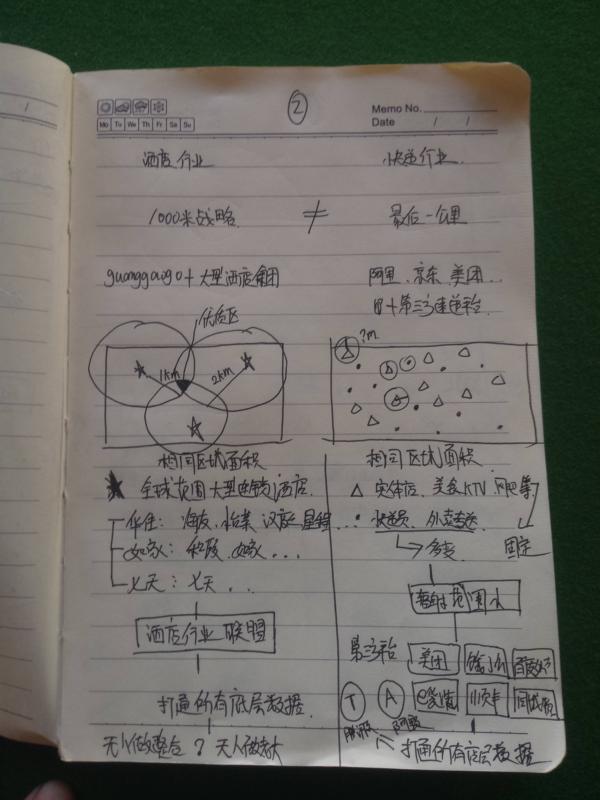 ②
Memo No.
Mo Tu We Th Fr Sa Su
Date / /
酒店行业 快递行业
1000米战略 ≠ 最后一公里
guanggaogo+大型酒店集团 阿里、京东、美团...
+第三方速递平台
优质区
?m
1km 2km
相同区域面积 相同区域面积
★ 全球范围大型连锁酒店. △ 实体店、美食KTV、网吧等
华住: 海友、怡莱、汉庭、星程... · 快递员、外卖专送
如家: 和颐、如家... 多变 固定
七天: 七天...
辐射范围小
酒店行业联盟
第三平台 美团
T A
打通所有底层数据.
腾讯 阿里
无人做整合? 无人做大 打通所有底层数据